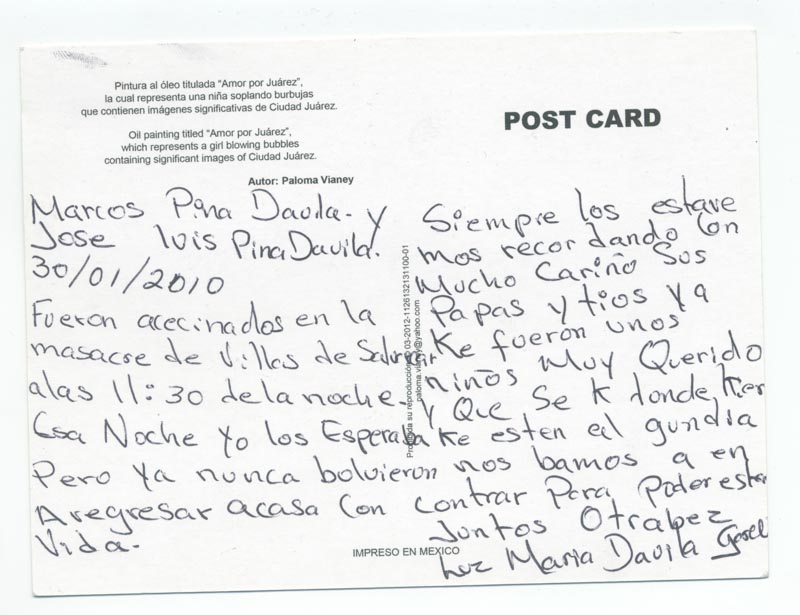 Pintura al óleo titulada "Amor por Juárez",
la cual representa una niña soplando burbujas
que contienen imágenes significativas de Ciudad Juárez.
Oil painting titled "Amor por Juárez",
which represents a girl blowing bubbles
containing significant images of Ciudad Juárez.
Autor: Paloma Vianey
POST CARD
Marcos Pina Davila- y
Jose luis Pina Davila.
30/01/2010
Fueron acecinados en la
masacre de Villas de Salvarcar
alas 11:30 de la noche.
Esa Noche Yo los Esperaba
Pero Ya nunca bolvieron
A regresar acasa Con
Vida.
Siempre los estave
mos recordando Con
Mucho Cariño Sus
Papas y tios Ya
Ke fueron unos
niños Muy Querido
y Que Se k donde kier
Ke esten al gundia
nos bamos a en
contrar Para Poder estar
Juntos Otrabez
Luz Maria Davila
paloma.vianey@yahoo.com
IMPRESO EN MEXICO